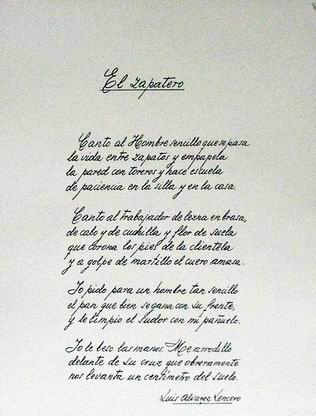 El zapatero
Canto al Hombre sencillo que se pasa
la vida entre zapatos y empapela
la pared con toreros y hace escuela
de paciencia en la silla y en la casa.
Canto al trabajador de lezna en brasa,
de cabo y de cuchilla y flor de suela
que corona los pies de la clientela
y a golpe de martillo el cuero amasa.
Yo pido para un hombre tan sencillo
el pan que bien se gana con su frente,
y le limpio el sudor con mi pañuelo.
Yo le beso las manos. Me arrodillo
delante de su cruz que obreramente
nos levanta un centímetro del suelo.
Luis Alvarez Lencero